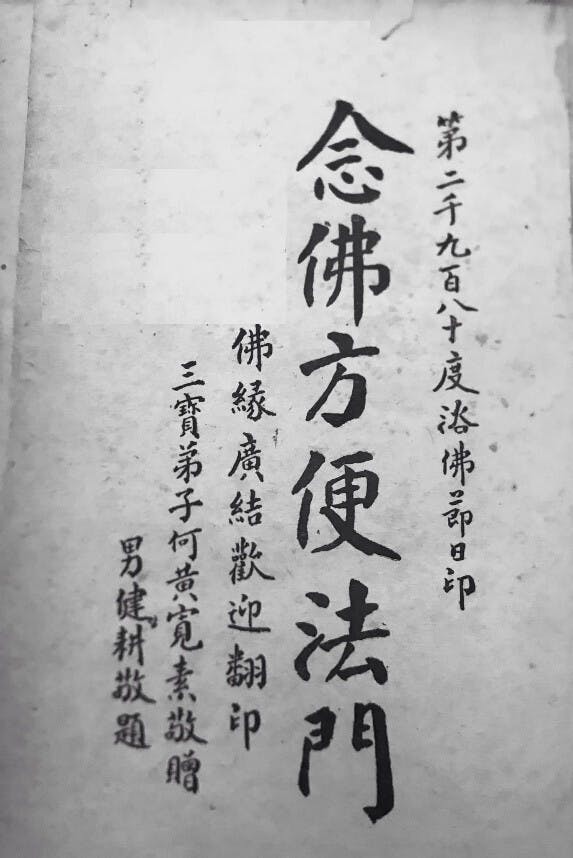 第二千九百八十度浴佛節日印
念佛方便法門
佛緣廣結歡迎翻印
三寶弟子何黃寬素敬贈
男健耕敬題